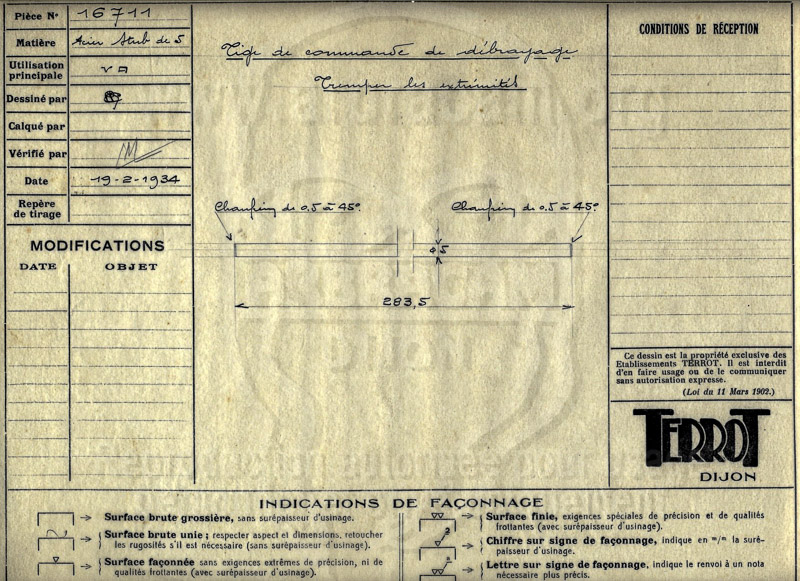 Pièce N° 16711
Matière Acier Stub de 5
Utilisation
principale
Dessiné par
Calqué par
Vérifié par
Date 19-2-1934
Repère
de tirage
MODIFICATIONS
DATE OBJET
Tige de commande de débrayage
Tremper les extrémités
Chanfrein de 0.5 à 45°.
Chanfrein de 0.5 à 45°.
5
283,5
CONDITIONS DE RÉCEPTION
Ce dessin est la propriété exclusive des
Etablissements TERROT. Il est interdit
d'en faire usage ou de le communiquer
sans autorisation expresse.
(Loi du 11 Mars 1902.)
TERROT
DIJON
INDICATIONS DE FAÇONNAGE
Surface brute grossière, sans surépaisseur d'usinage.
Surface brute unie ; respecter aspect et dimensions, retoucher
les rugosités s'il est nécessaire (sans surépaisseur d'usinage).
Surface façonnée sans exigences extrêmes de précision, ni de
qualités frottantes (avec surépaisseur d'usinage).
Surface finie, exigences spéciales de précision et de qualités
frottantes (avec surépaisseur d'usinage).
Chiffre sur signe de façonnage, indique en m/m la suré-
paisseur d'usinage.
Lettre sur signe de façonnage, indique le renvoi à un nota
nécessaire plus précis.